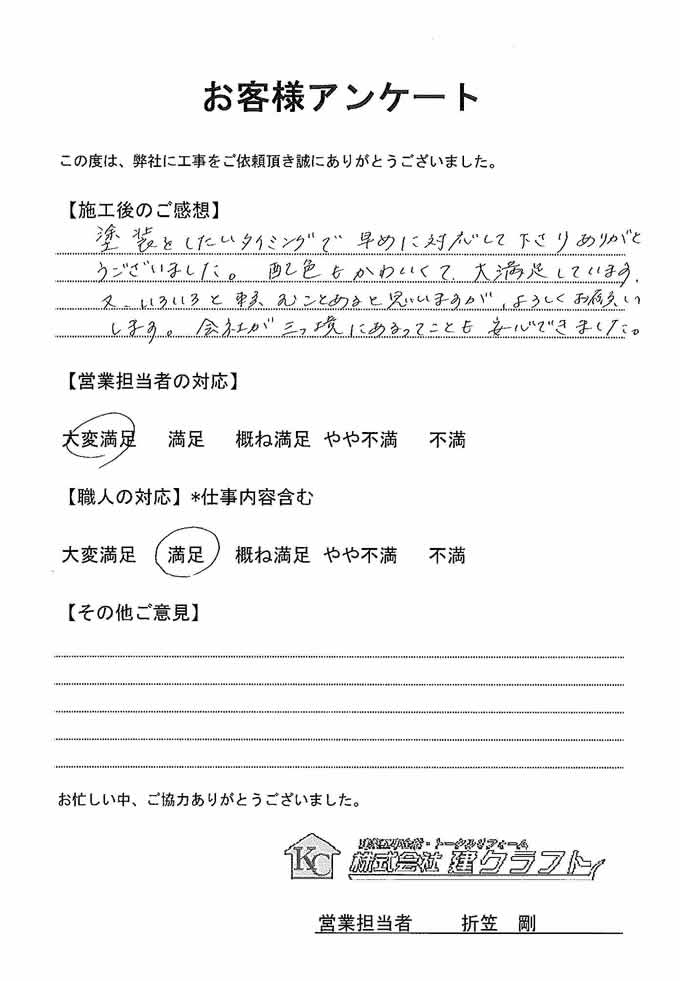 お客様アンケート
この度は、弊社に工事をご依頼頂き誠にありがとうございました。
【施工後のご感想】
塗装をしたいタイミングで早めに対応して下さりありがと
うございました。配色もかわいくて、大満足しています。
又、いろいろと頼むことあると思いますが、よろしくお願い
します。会社が三ツ境にあるってことも安心できました。
【営業担当者の対応】
大変満足 満足 概ね満足 やや不満 不満
【職人の対応】*仕事内容含む
大変満足 満足 概ね満足 やや不満 不満
【その他ご意見】
お忙しい中、ご協力ありがとうございました。
KC
トータルリフォーム
株式会社 建クラフト
営業担当者 折笠 剛